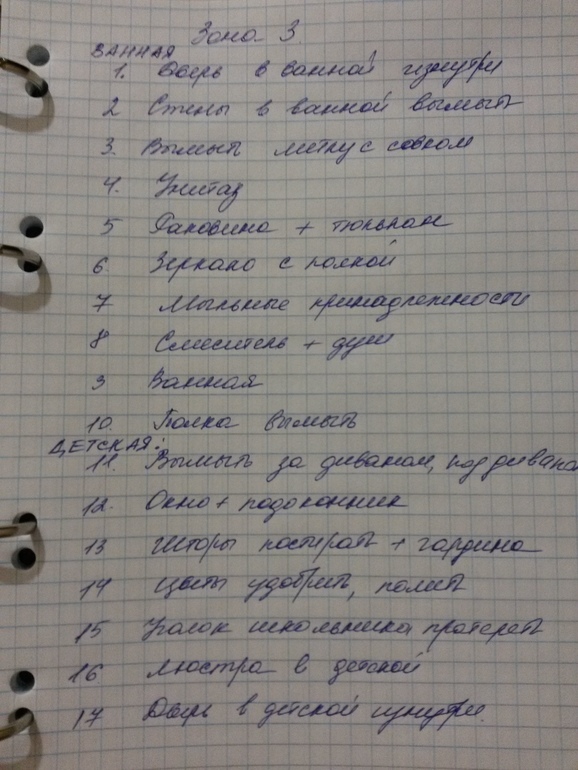 Зона 3
ВАННАЯ
1. Дверь в ванной изнутри
2 Стены в ванной вымыть
3. Вымыть метлу с совком
4. Унитаз
5 Раковина + тюльпан
6. Зеркало с полкой
7 Мыльные принадлежности
8 Смеситель + душ
9 Ванная
10. Полка вымыть
ДЕТСКАЯ:
11. Вымыть за диваном, под дивано
12. Окно + подоконник
13 Шторы постирать + гардина
14 Цветы удобрить, полить
15 Уголок школьника протереть
16 Люстра в детской
17 Дверь в детской изнутри.